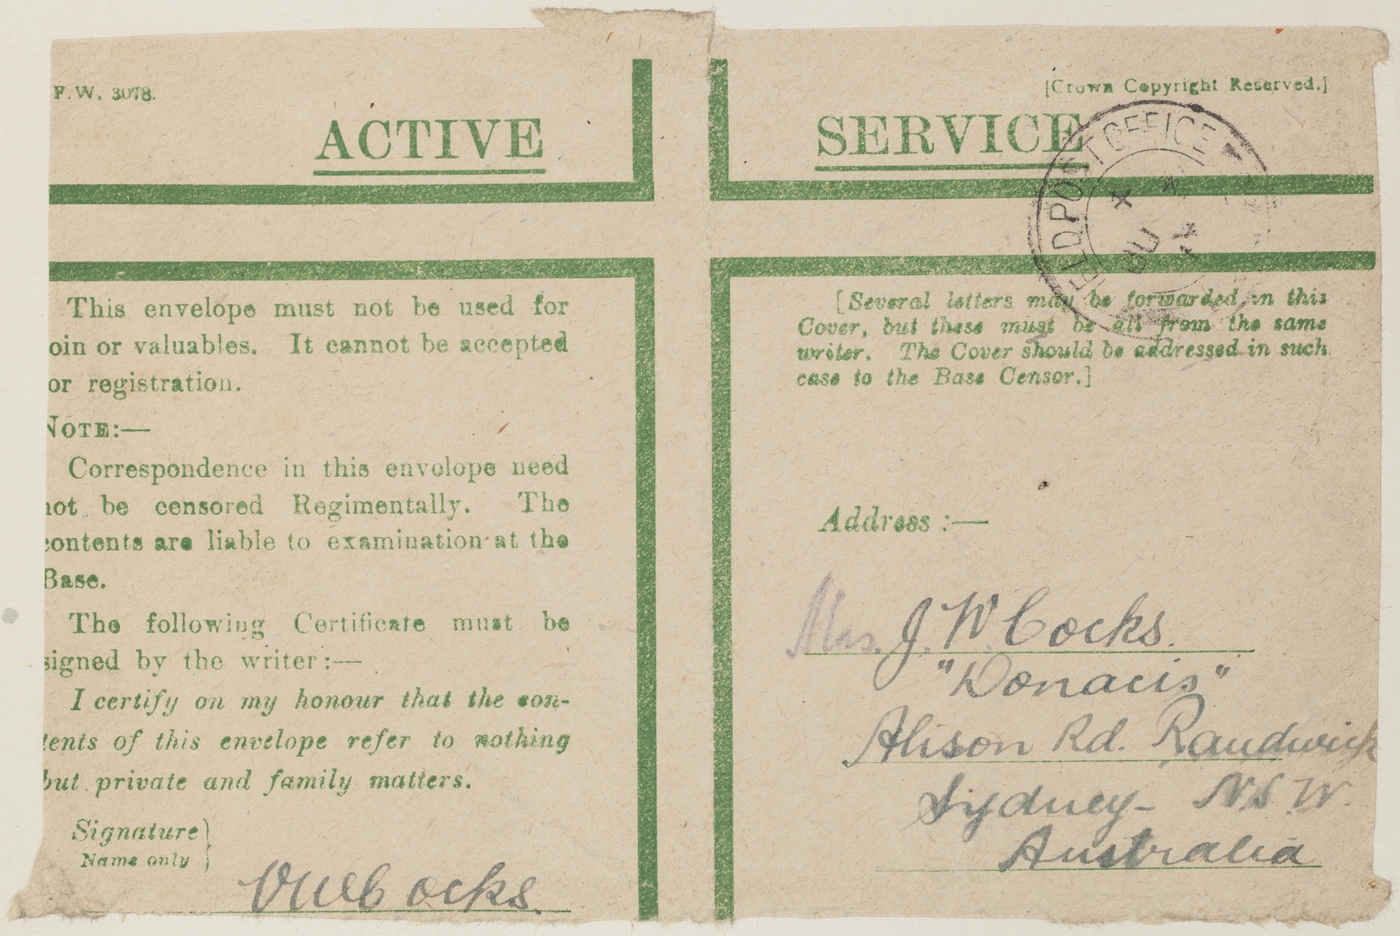 F.W. 3078.
ACTIVE
This envelope must not be used for
oin or valuables. It cannot be accepted
or registration.
NOTE:—
Correspondence in this envelope need
not be censored Regimentally. The
contents are liable to examination at the
Base.
The following Certificate must be
signed by the writer:—
I certify on my honour that the con-
tents of this envelope refer to nothing
but private and family matters.
Signature
Name only
Cocks.
[Crown Copyright Reserved.]
SERVICE
ELD POST OFFICE
[Several letters may be forwarded in this
Cover, but these must be all from the same
writer. The Cover should be addressed in such
case to the Base Censor.]
Address :—
Mrs. J. W. Cocks.
"Donacis"
Alison Rd. Randwick
Sydney— N.S.W.
Australia